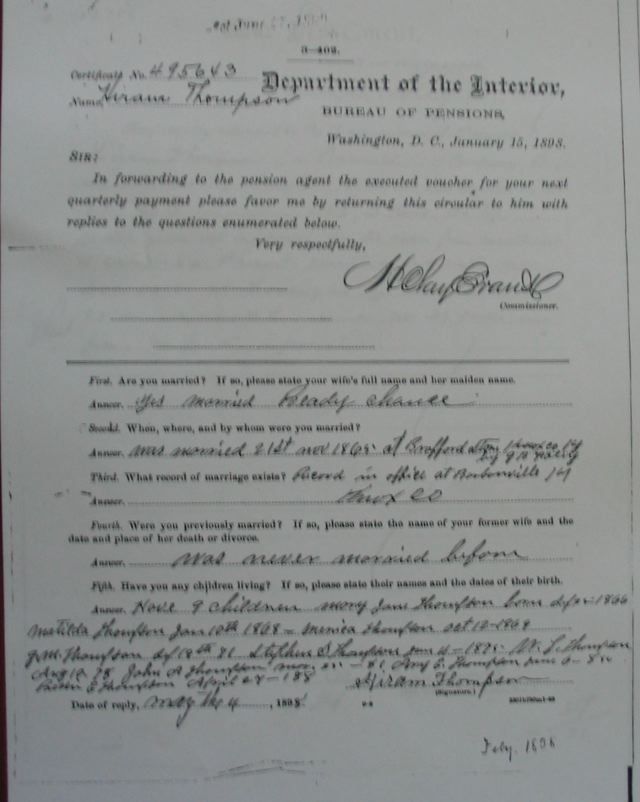 3-402.
Certificate No. 495643
Department of the Interior,
Name, Hiram Thompson
BUREAU OF PENSIONS,
Washington, D. C., January 15, 1898.
SIR:
In forwarding to the pension agent the executed voucher for your next
quarterly payment please favor me by returning this circular to him with
replies to the questions enumerated below.
Very respectfully,
H Clay Evans
Commissioner.
First. Are you married? If so, please state your wife's full name and her maiden name.
Answer. yes married Ready Chance
Second. When, where, and by whom were you married?
Answer. was married 21st nov 1865 at
Third. What record of marriage exists? Record in office at Barbourville
Answer. Knox Co
Fourth. Were you previously married? If so, please state the name of your former wife and the
date and place of her death or divorce.
Answer. was never married before
Fifth. Have you any children living? If so, please state their names and the dates of their birth.
Answer. Have 9 children mary Jane Thompson born 1866
Matilda Thompson Jan 10th 1868 Thompson oct 12 1869
Thompson Stephen S Thompson W. L. Thompson
John A Thompson Thompson
Thompson April 28 188 Hiram Thompson
(Signature.)
Date of reply, may the 4, 1898
Feby. 1898